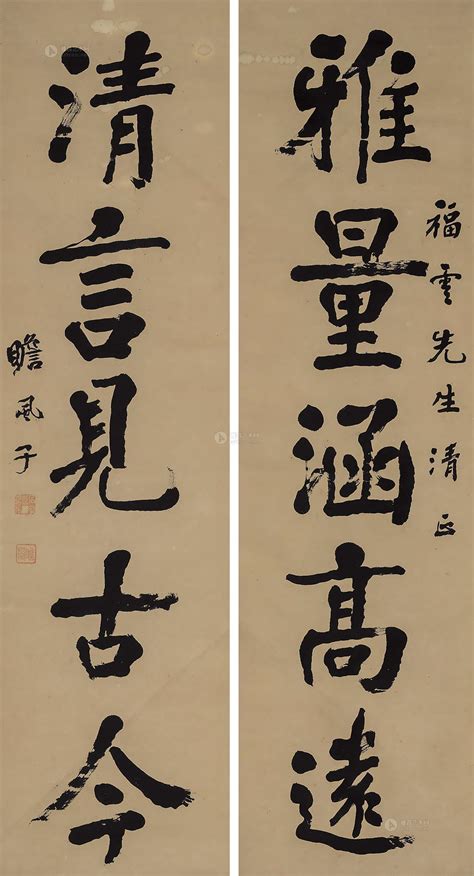 福雲先生清正
雅量涵高遠
清言見古今
瞻風子